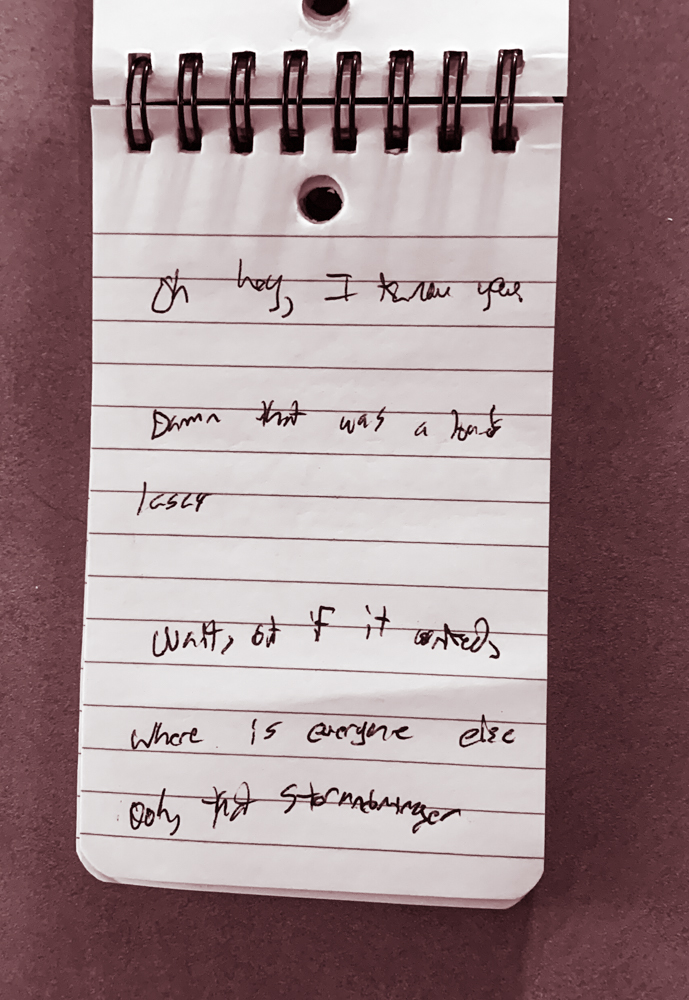 Oh hey, I know you
Damn that was a
Wait, if it
where is everyone else
Ooh, that Stormbringer